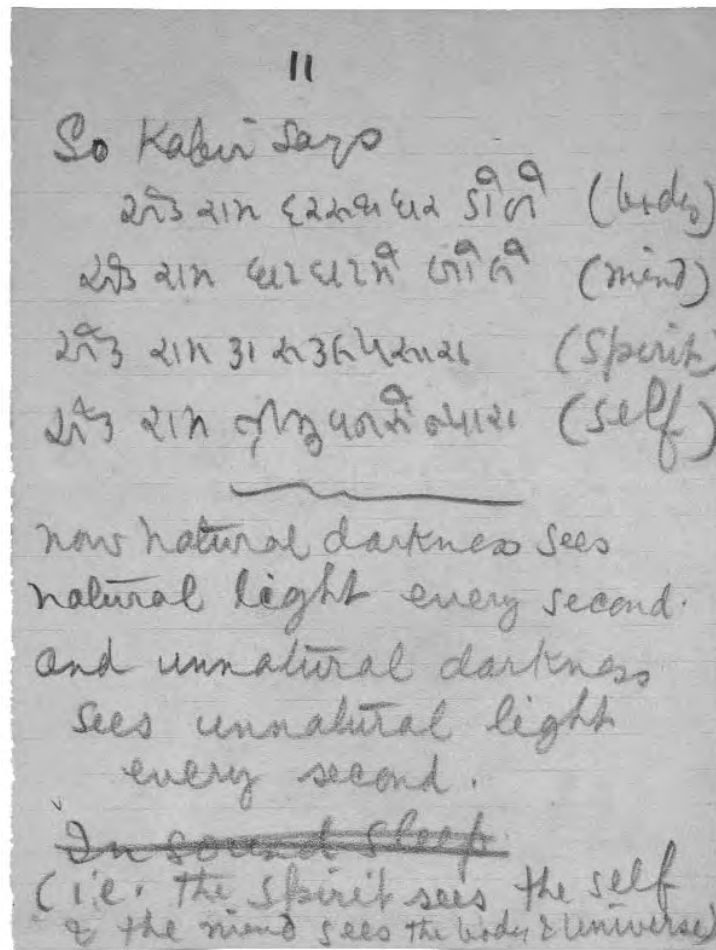 11
So Kabir says
એક રામ દશરથ ઘર ડોલે (body)
એક રામ ઘરઘરમેં બોલે (mind)
એક રામ કા સકલ પસારા (Spirit)
એક રામ ત્રીભુવનસેં ન્યારા (Self)
now natural darkness sees
natural light every second.
and unnatural darkness
sees unnatural light
every second.
In sound sleep
(i.e. the spirit sees the self
& the mind sees the body & universe)